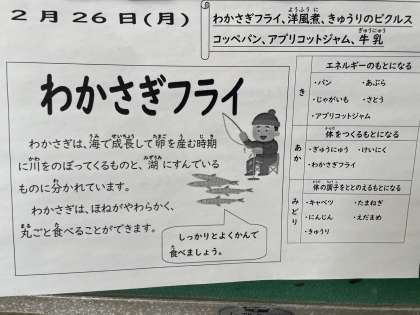 2月26日(月)
わかさぎフライ、洋風煮、きゅうりのピクルス
コッペパン、アプリコットジャム、牛乳
わかさぎフライ
わかさぎは、海で成長して卵を産む時期
に川をのぼってくるものと、湖にすんでいる
ものに分かれています。
わかさぎは、ほねがやわらかく、
丸ごと食べることができます。
しっかりとよくかんで
食べましょう。
き
エネルギーのもとになる
・パン ・あぶら
・じゃがいも ・さとう
・アプリコットジャム
あか
体をつくるもとになる
・ぎゅうにゅう ・けいにく
・わかさぎフライ
みどり
体の調子をととのえるもとになる
・キャベツ ・たまねぎ
・にんじん ・えだまめ
・きゅうり